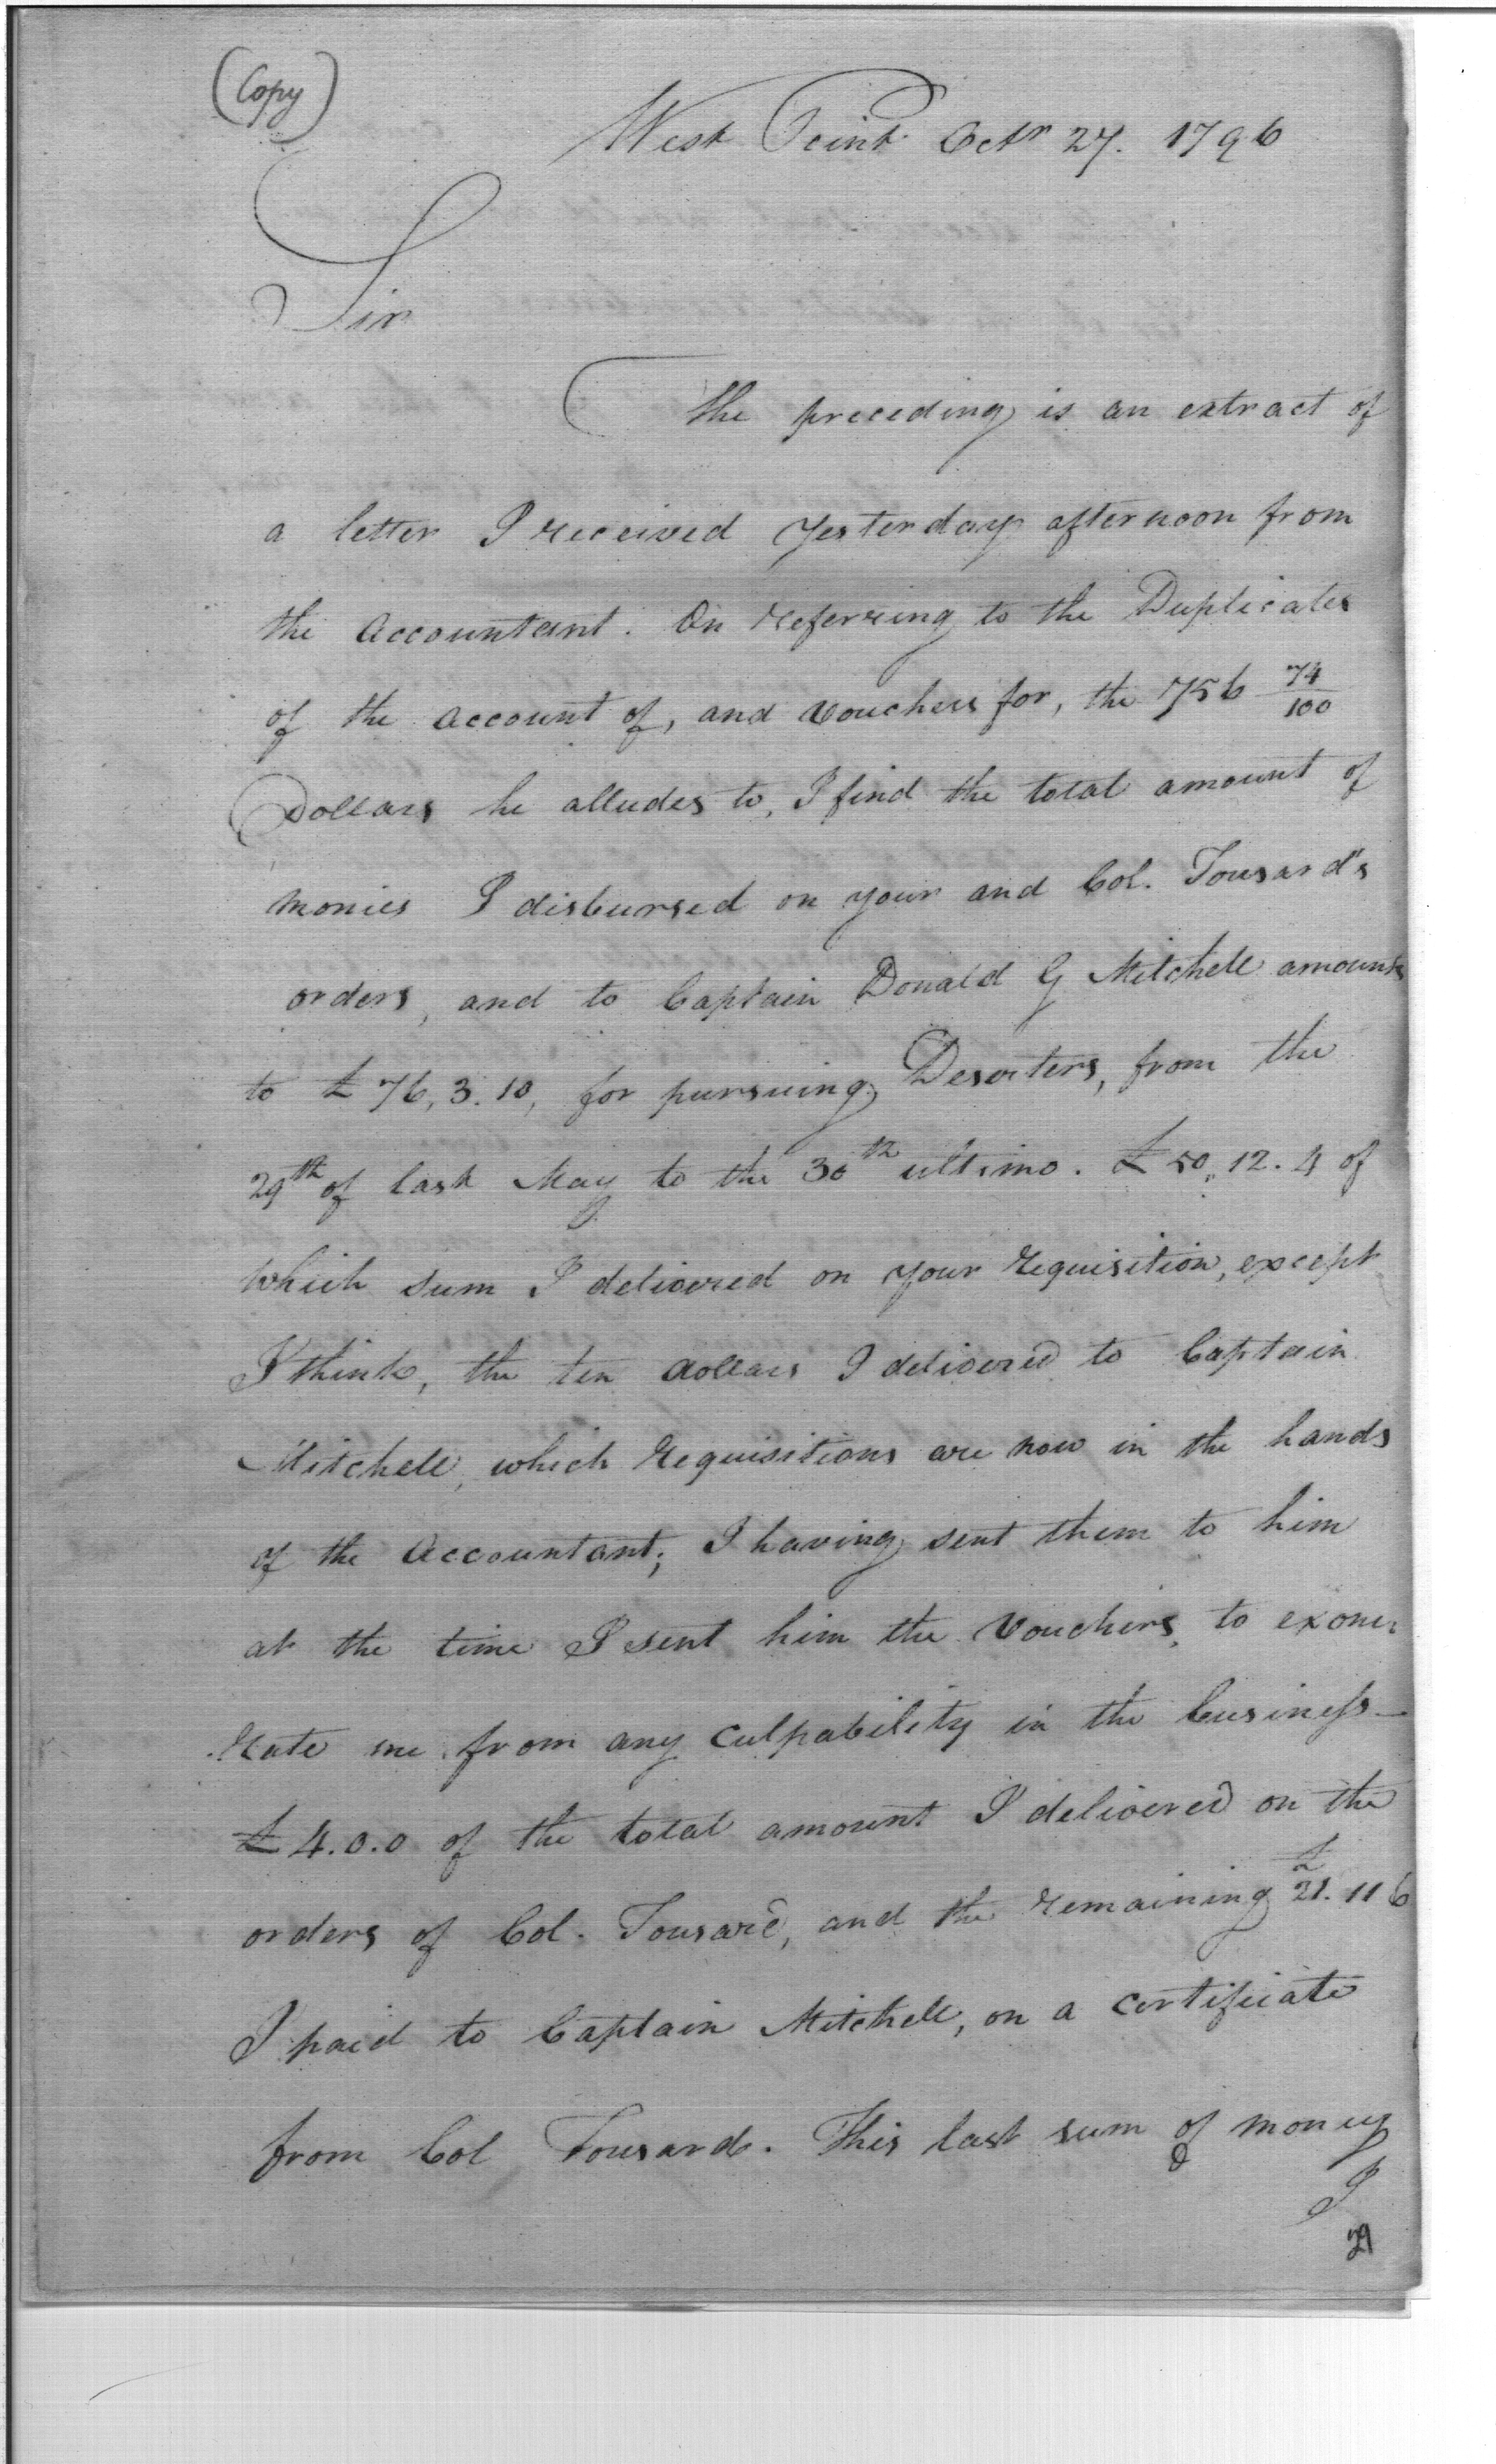 (Copy)
West Point Octr 27. 1796
Sir
The preceding is an extract of
a letter I received yesterday afternoon from
the Accountant. On referring to the Duplicates
of the account of, and vouchers for, the 756 74/100
Dollars he alludes to, I find the total amount of
monies I disbursed on your and Col. Tousard's
orders, and to Captain Donald G Mitchell amounts
to £ 76, 3. 10, for pursuing Deserters, from the
29th of last May to the 30th ultimo. £ 50,, 12. 4 of
which sum I delivered on your requisition, except
I think, the ten dollars I delivered to Captain
Mitchell, which requisitions are now in the hands
of the Accountant; I having sent them to him
at the time I sent him the Vouchers, to exone-
rate me from any culpability in the business—
£ 4.0.0 of the total amount I delivered on the
orders of Col. Tousard, and the remaining £21. 11 6
I paid to Captain Mitchell, on a certificate
from Col Tousard. This last sum of money
I
29